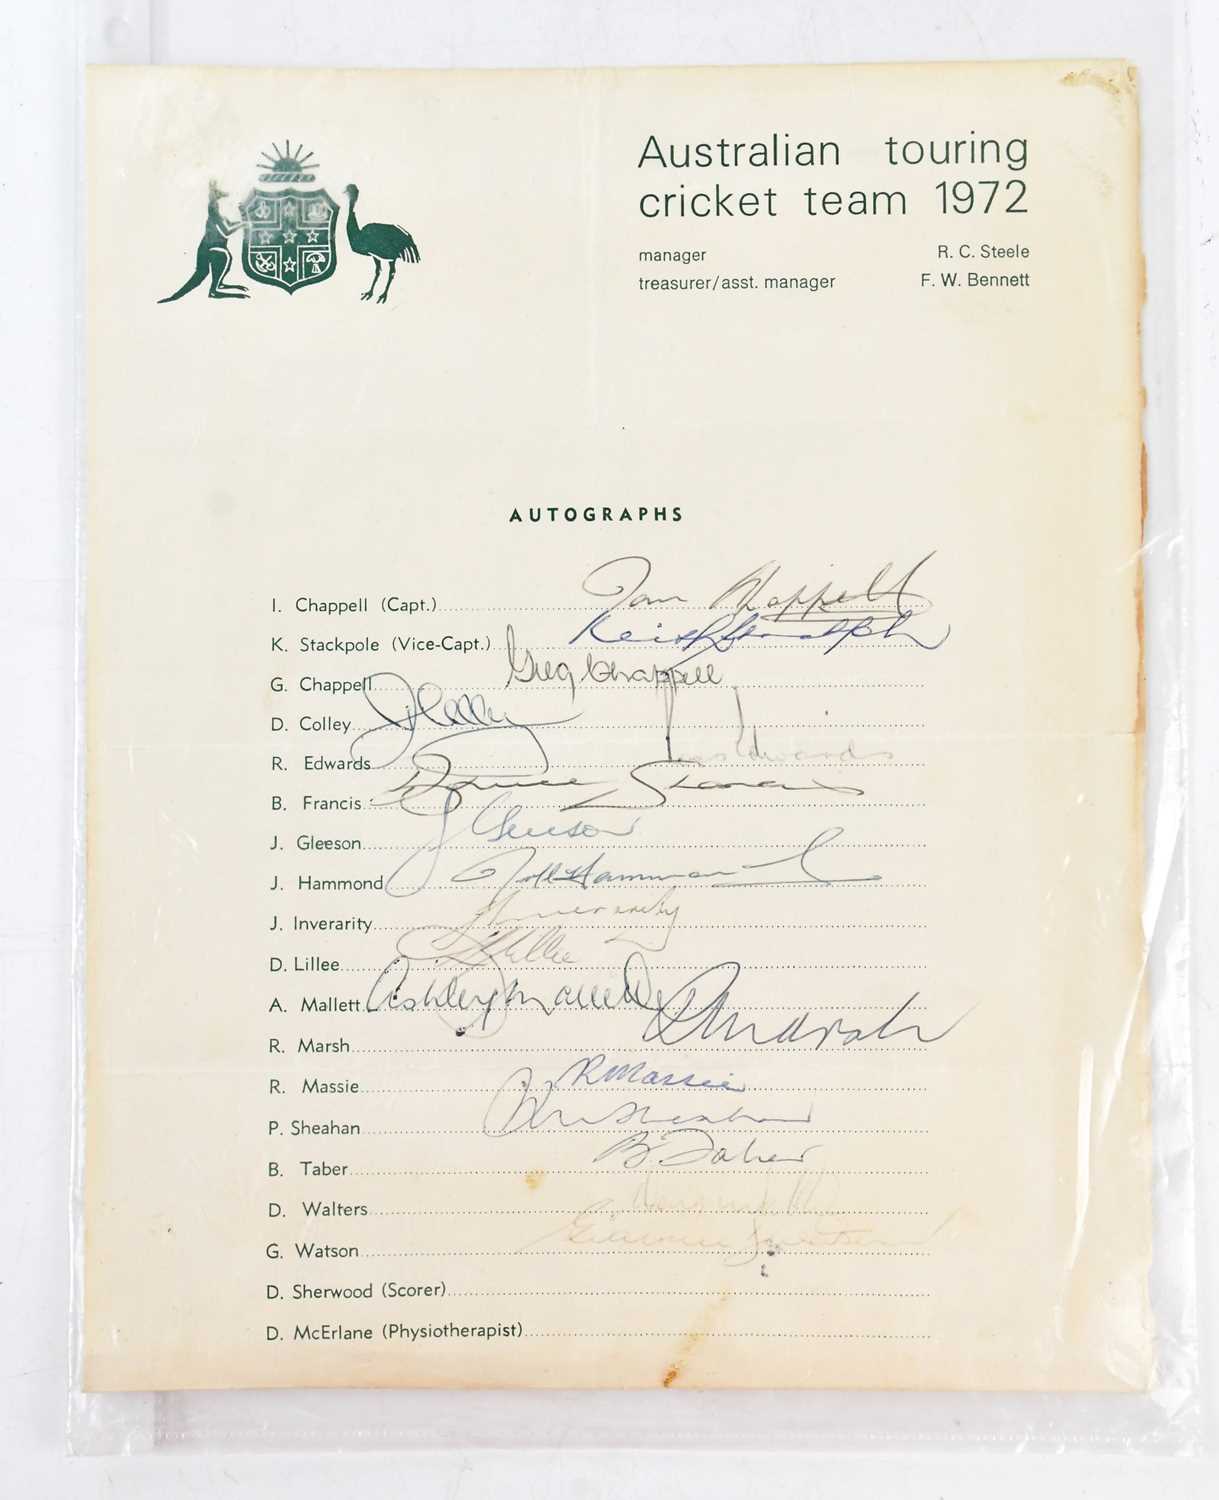 Australian touring
cricket team 1972
manager R. C. Steele
treasurer/asst. manager F. W. Bennett
AUTOGRAPHS
I. Chappell (Capt.) Ian Chappell
K. Stackpole (Vice-Capt.) Keith Stackpole
G. Chappell Greg Chappell
D. Colley
R. Edwards Ross Edwards
B. Francis Bruce Francis
J. Gleeson J Gleeson
J. Hammond Jeff Hammond
J. Inverarity J Inverarity
D. Lillee DK Lillee
A. Mallett Ashley Mallett
R. Marsh R Marsh
R. Massie R Massie
P. Sheahan Sheahan
B. Taber B. Taber
D. Walters
G. Watson Graeme Watson
D. Sherwood (Scorer)
D. McErlane (Physiotherapist)